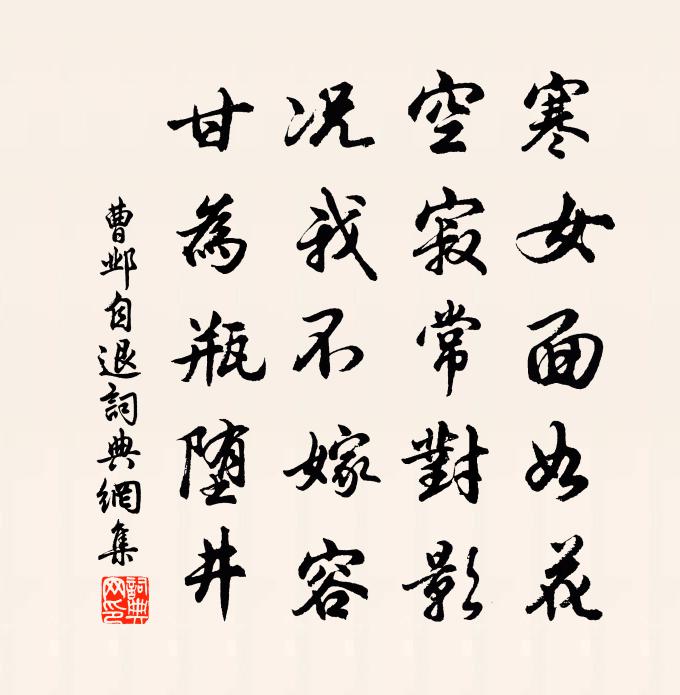 寒女面如花
空寂常對影
况我不嫁容
甘為瓶堕井
曹邺自退詞典網集
詞典網印